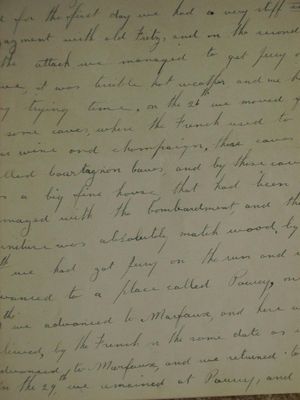 for the first day we had a very stiff
with old Fritz, and on the second
the attack we managed to get Jerry
, it was terrible hot weather and we h
trying time. on the 26th we moved
some caves, where the French used to
wine and champaign, these caves
lled Courtagnon Caves, and by these cave
a big fine house that had been
amaged with the Bombardment and th
niture was absolutely match wood, by
th we had got Jerry on the run and
vanced to a place called Pourcy, on
th we advanced to Marfaux, and here
lieved, by the French n the same date as
advanced to Marfaux, and we returned to
n the 29th we remained at Pourcy, and